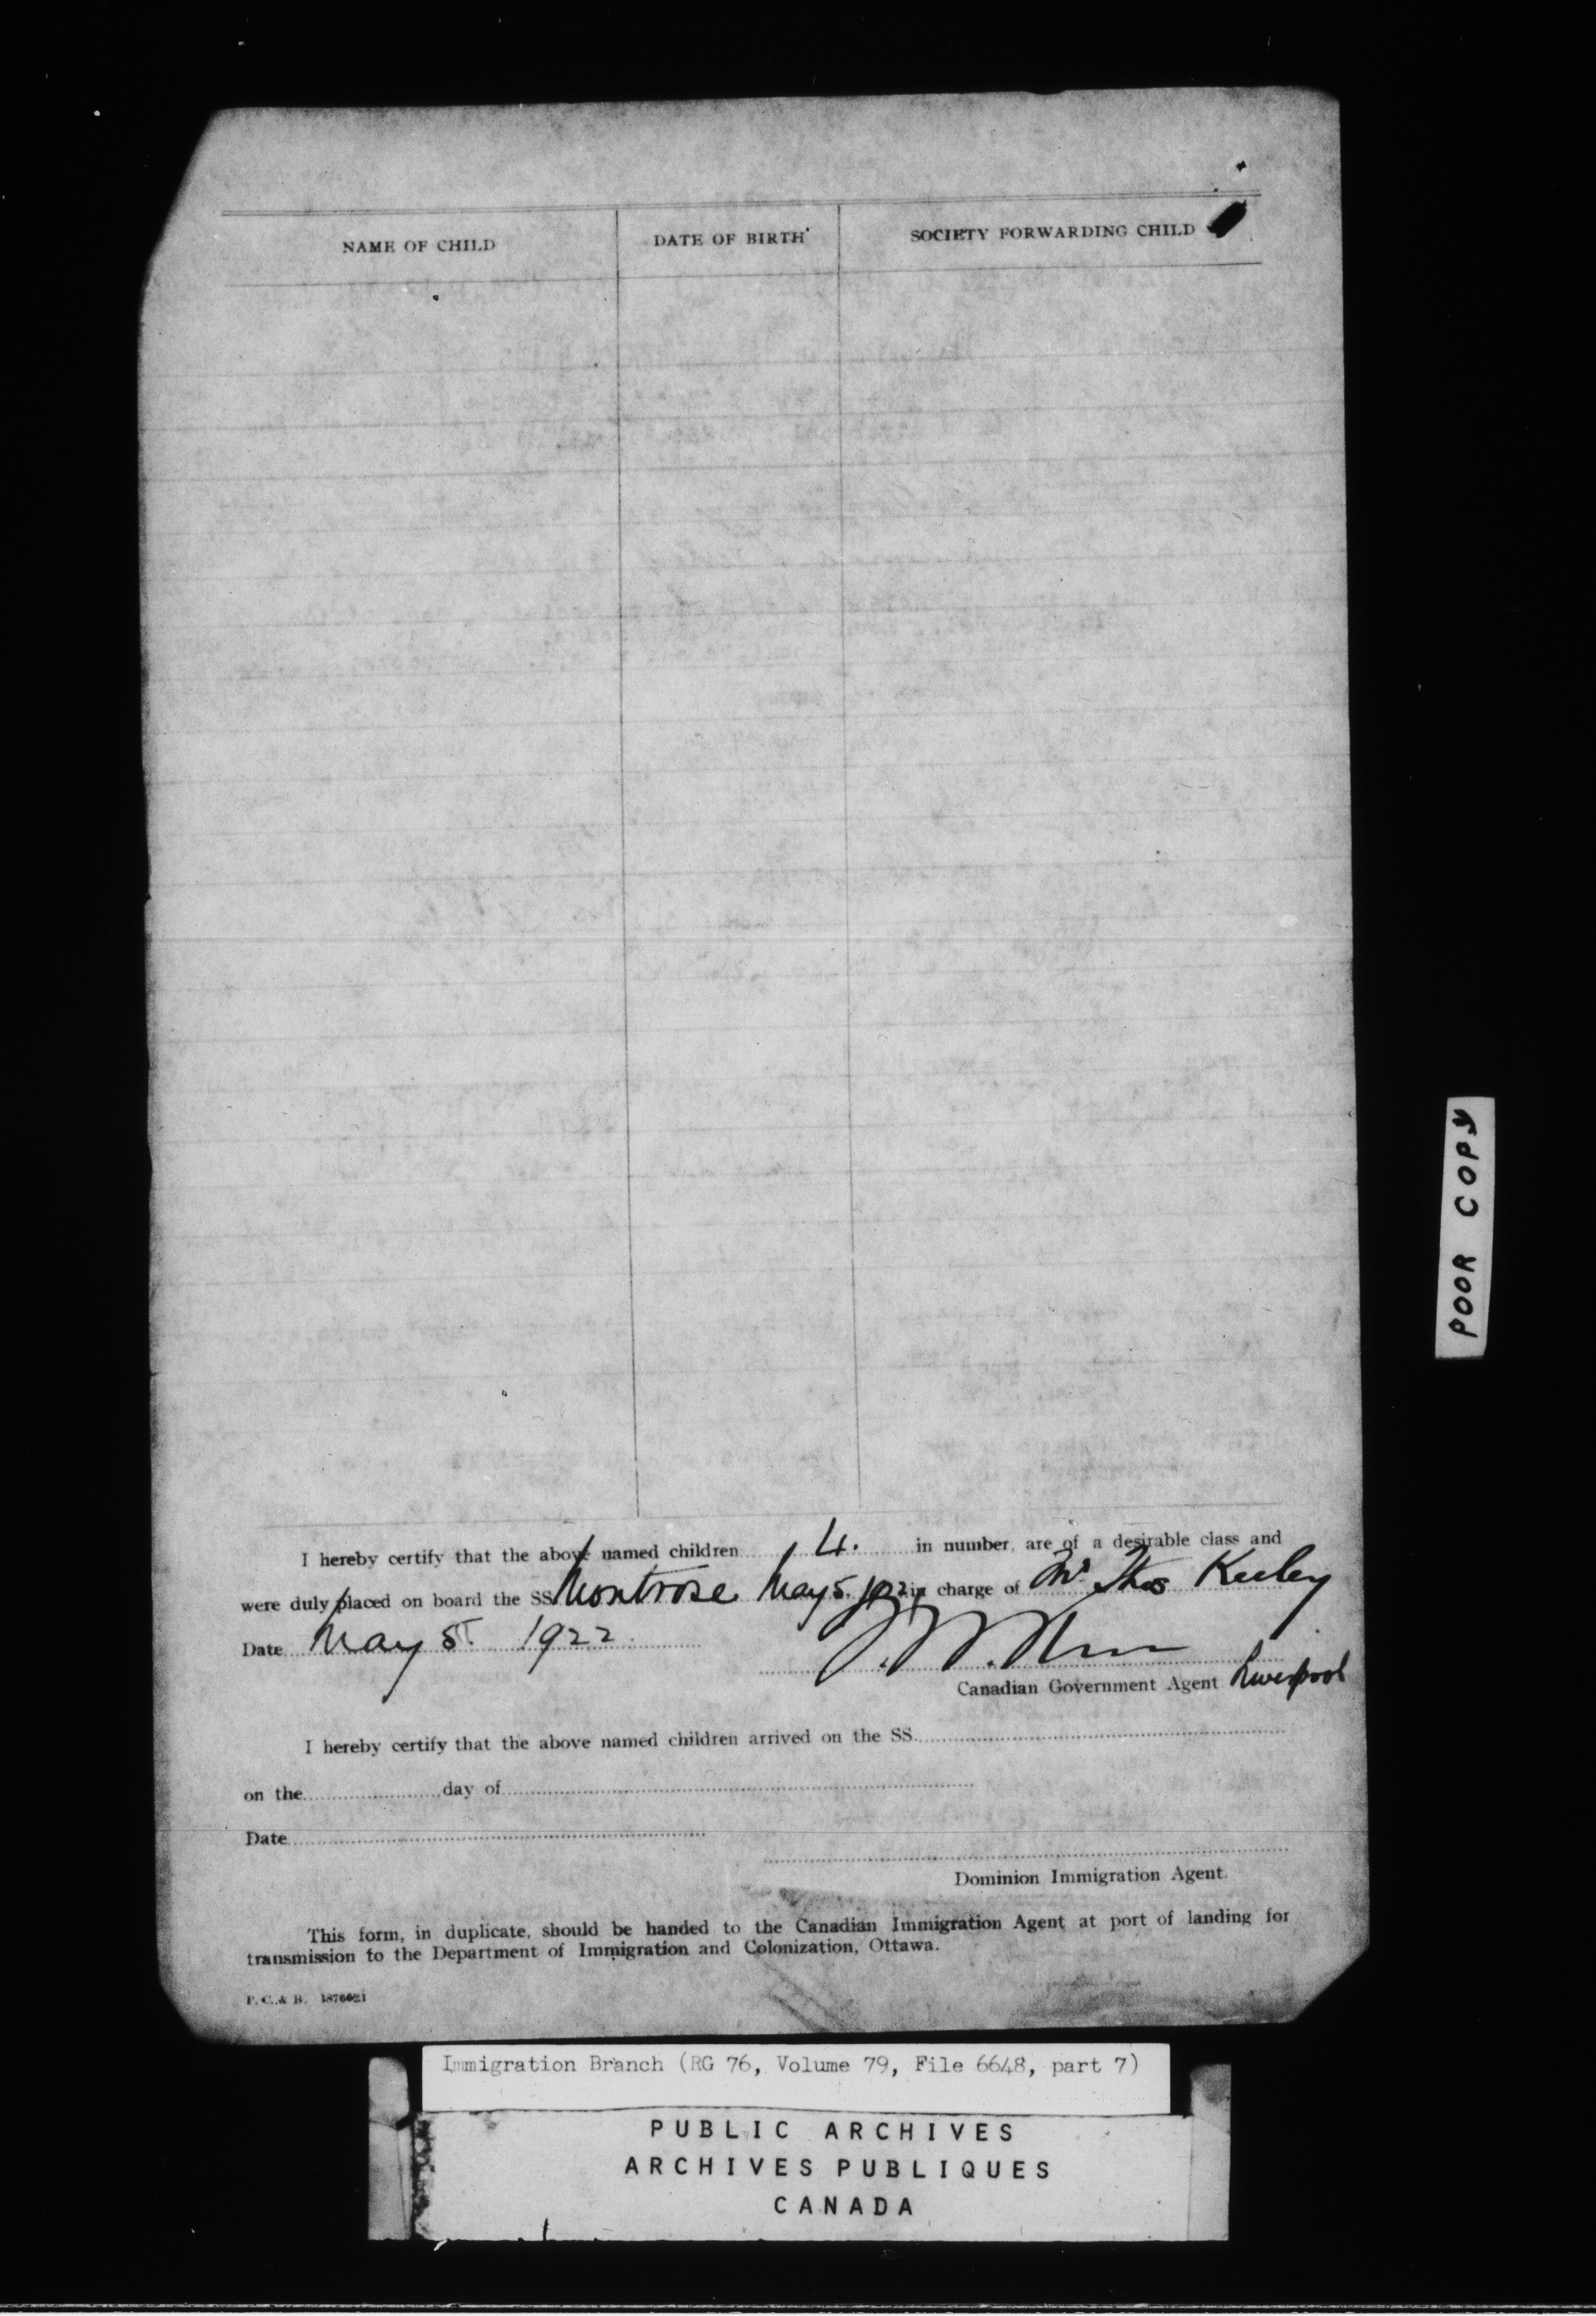 NAME OF CHILD DATE OF BIRTH SOCIETY FORWARDING CHILD
I hereby certify that the above named children 14. in number, are of a desirable class and
were duly placed on board the SS Montrose May 5. 1922 in charge of Mr Thos Keeley
Date May 5. 1922
Canadian Government Agent Liverpool
I hereby certify that the above named children arrived on the SS
on the day of
Date
Dominion Immigration Agent.
This form, in duplicate, should be handed to the Canadian Immigration Agent at port of landing for
transmission to the Department of Immigration and Colonization, Ottawa.
POOR COPY
Immigration Branch (RG 76, Volume 79, File 6648, part 7)
PUBLIC ARCHIVES
ARCHIVES PUBLIQUES
CANADA